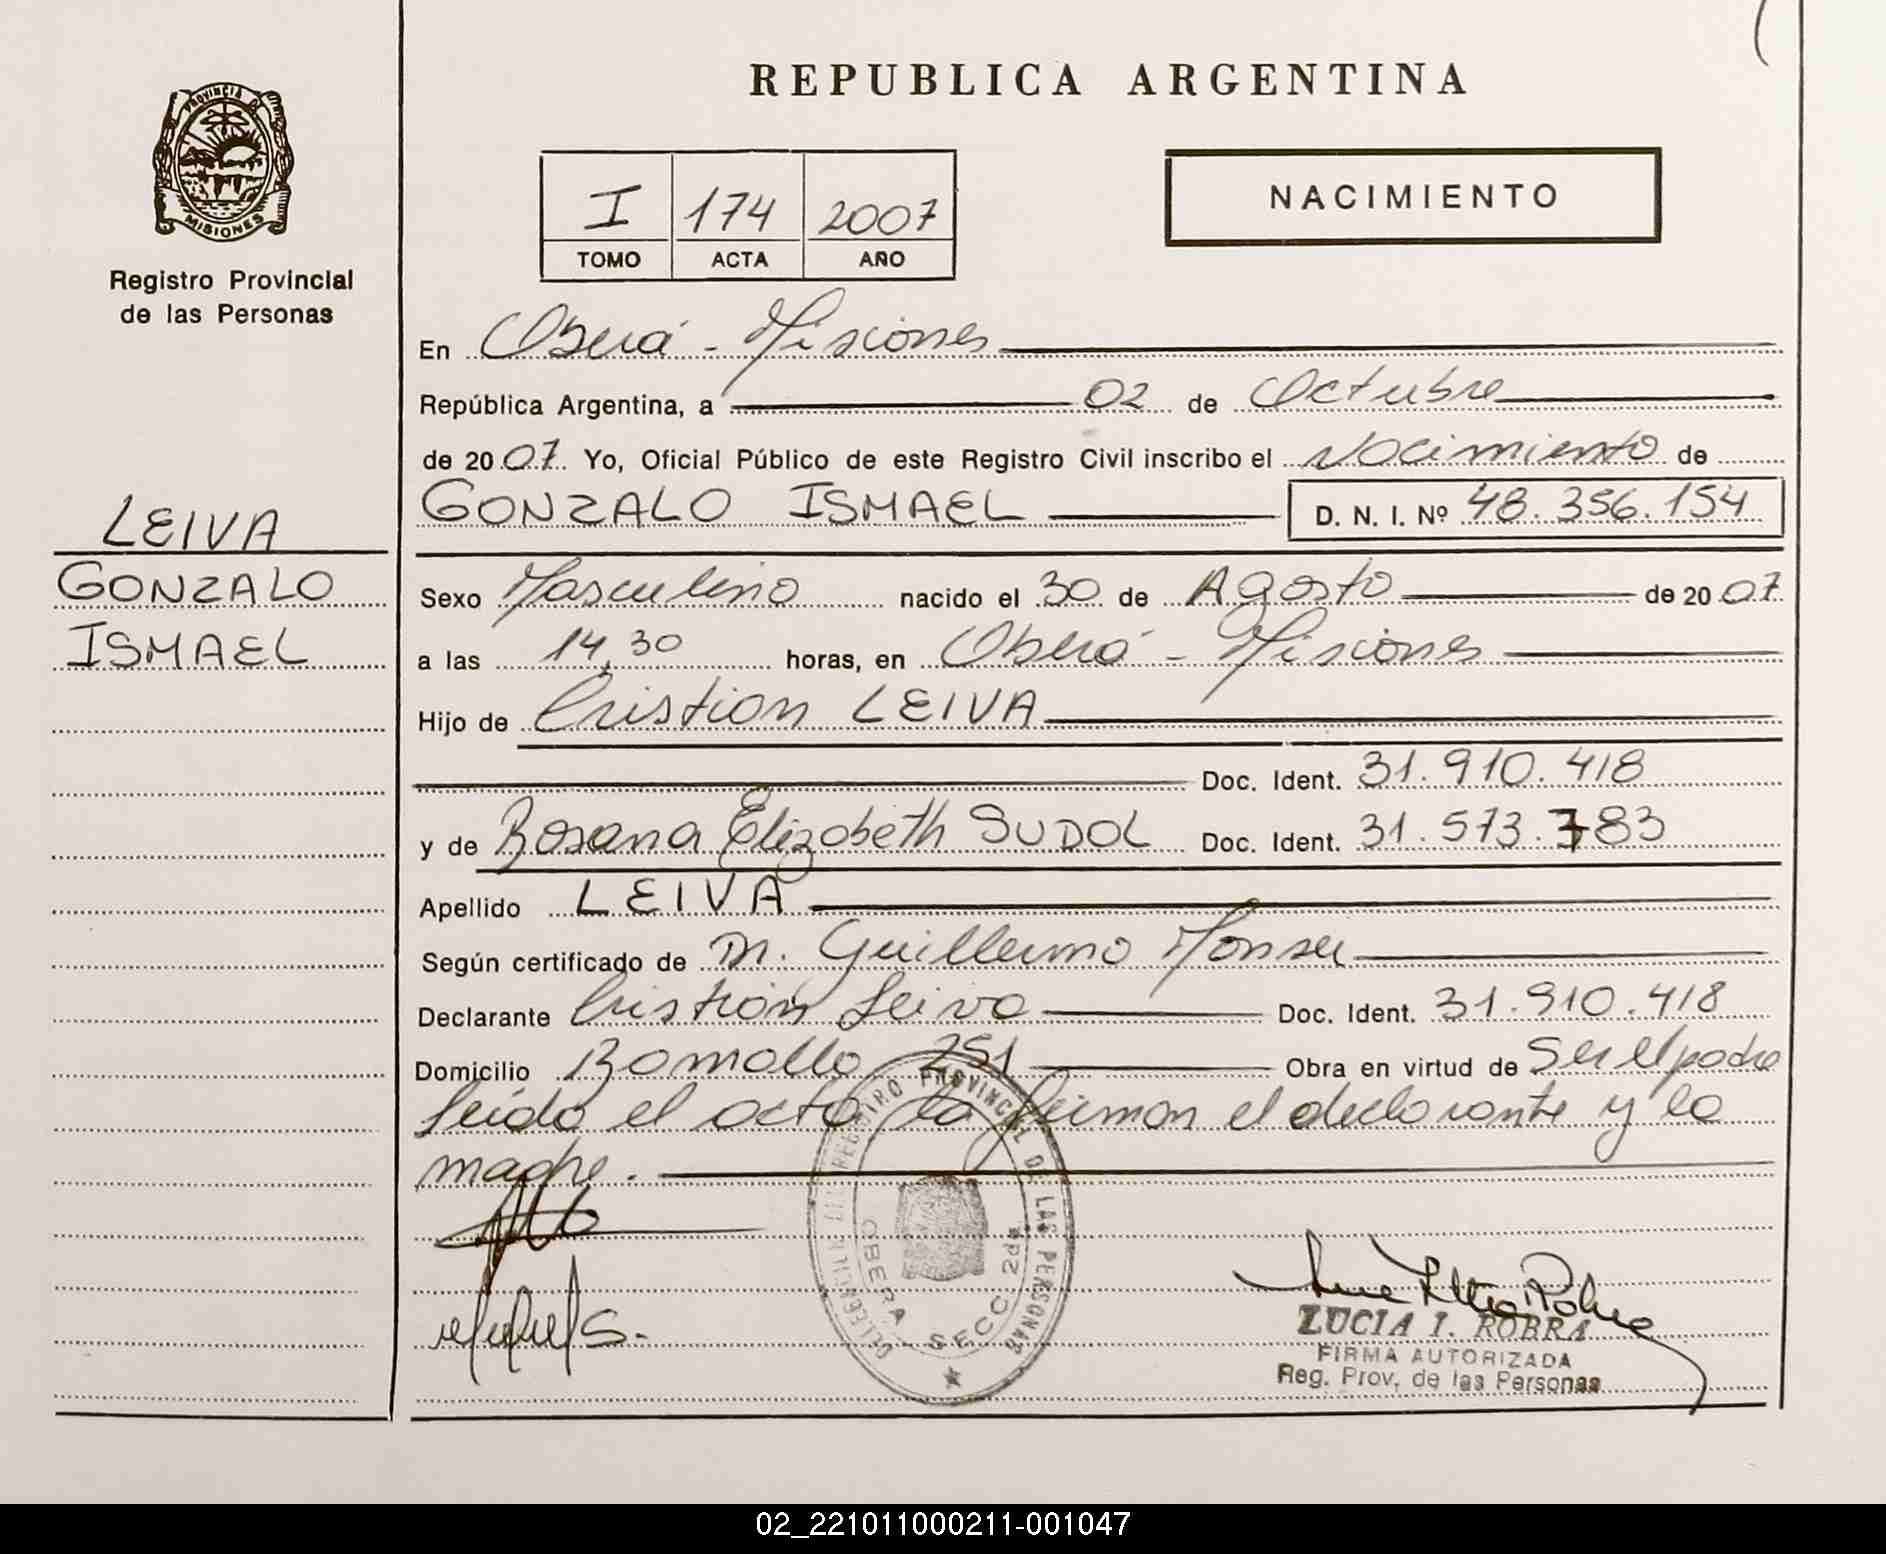 REPUBLICA ARGENTINA
PROVINCIA DE
MISIONES
Registro Provincial
de las Personas
I 174 2007
TOMO ACTA AÑO
NACIMIENTO
En Oberá - Misiones
República Argentina, a 02 de Octubre
de 2007. Yo, Oficial Público de este Registro Civil inscribo el Nacimiento de
GONZALO ISMAEL D. N. I. Nº 48.356.154
LEIVA
GONZALO
ISMAEL
Sexo Masculino nacido el 30 de Agosto de 2007
a las 14,30 horas, en Oberá - Misiones
Hijo de Cristian LEIVA
Doc. Ident. 31.910.418
y de Rosana Elizabeth SUDOL Doc. Ident. 31.573.783
Apellido LEIVA
Según certificado de Dr. Guillermo
Declarante Cristian Leiva Doc. Ident. 31.910.418
Domicilio 251 Obra en virtud de Ser el padre
Leída el acta la firman el declarante y la
madre.
DELEGACION DEL REGISTRO PROVINCIAL DE LAS PERSONAS
OBERA SECC. 2da
LUCIA I. ROBRA
FIRMA AUTORIZADA
Reg. Prov. de las Personas
02_221011000211-001047